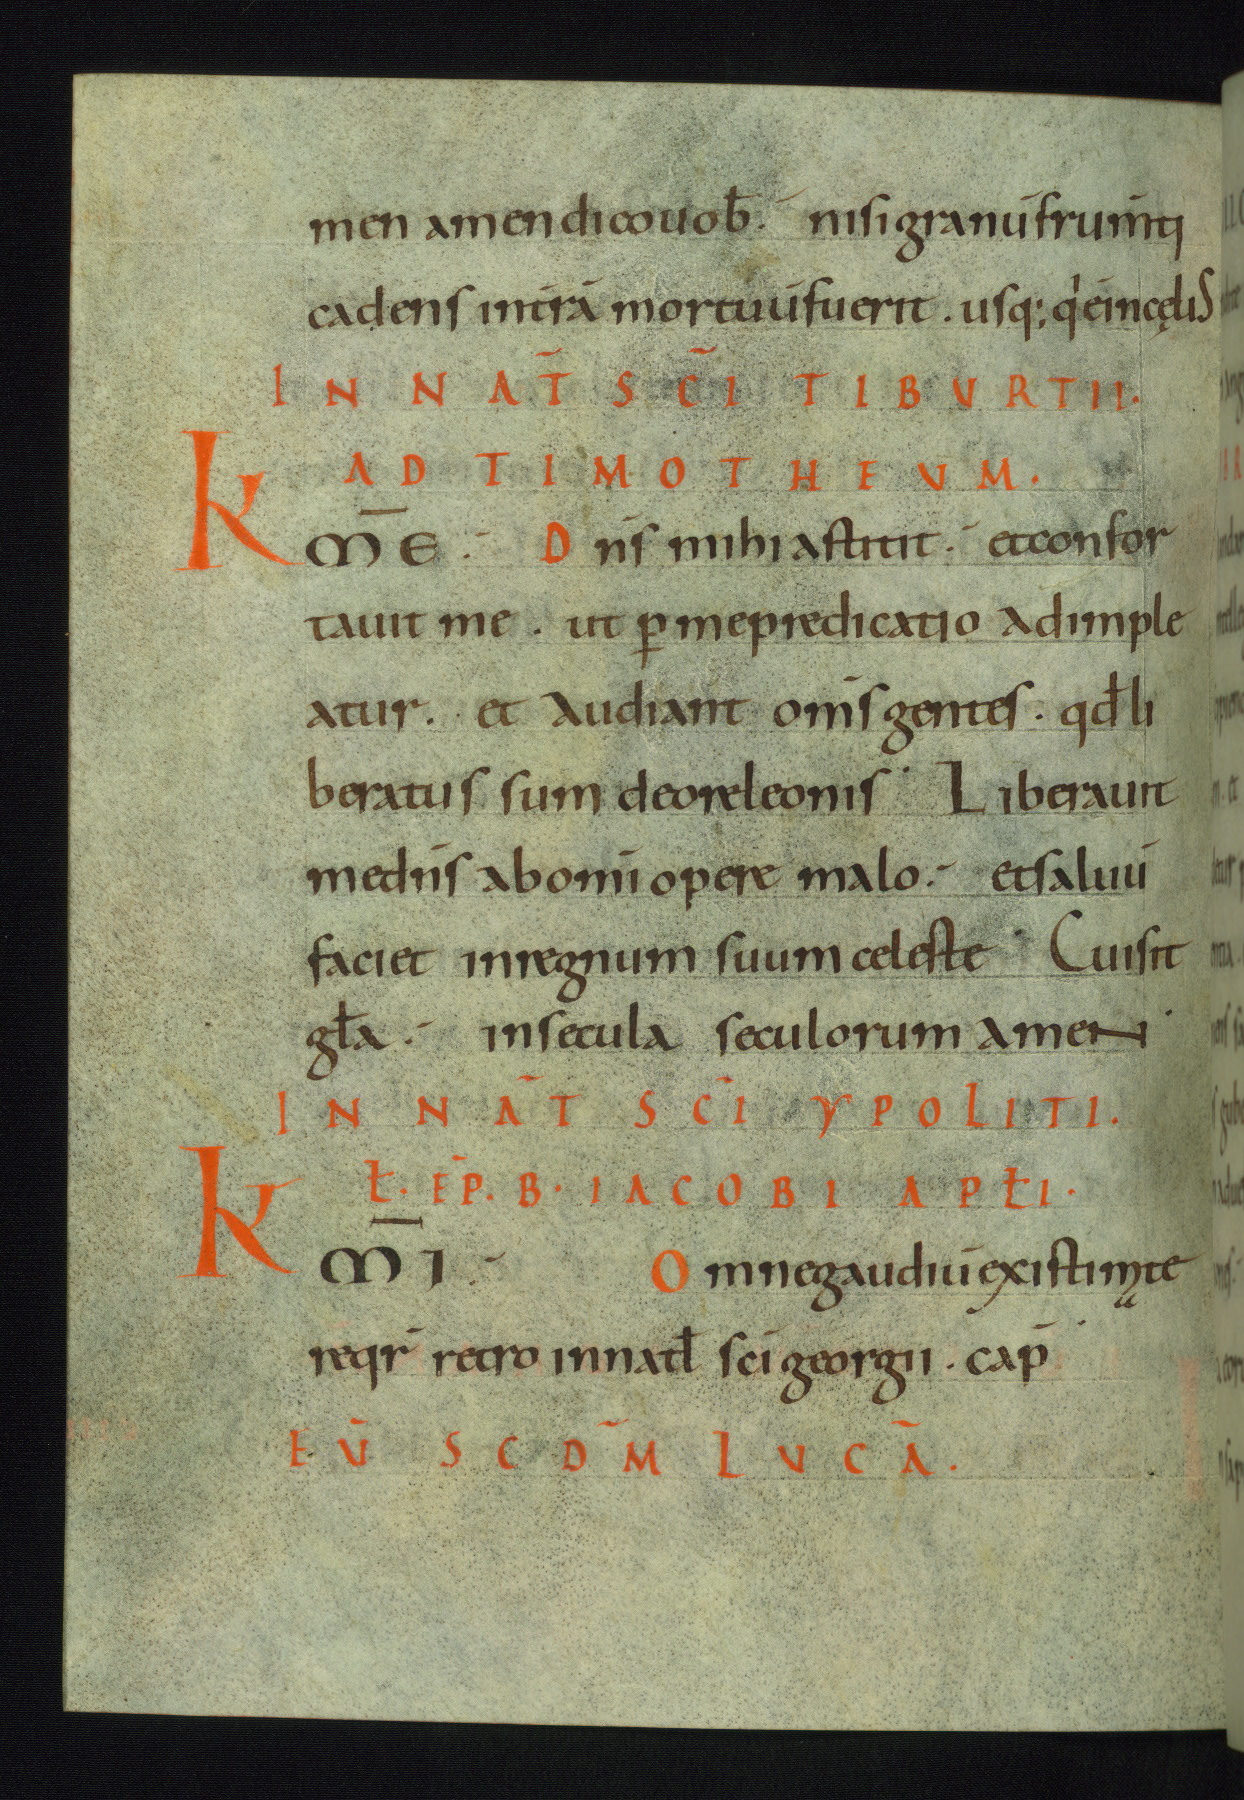 men amen dico uob̄. nisi granū frum̄ti
cadens in tr̄ā mortuū fuerit . usq; q̇ē in cęlis
IN NAT̄ SC̄I TIBURTII.
AD TIMOTHEVM.
K M̄E . Dn̄s mihi astitit . et confor
tauit me . ut ꝑ me predicatio adimple
atur . et audiant om̄s gentes . qd̄ li
beratus sum deore leonis Liberauit
me dn̄s ab om̄i opere malo . et saluū
faciet in regnum suum celeste Cui sit
gła . in secula seculorum amen
IN NAT̄ SC̄I YPOLITI.
Ł. EP̄. B. IACOBI APŁI.
K M̄I . Omne gaudiū existim̄te
reqr̄ retro in natł sc̄i georgii . cap̄
EV̄ SCDM̄ LVCĀ.